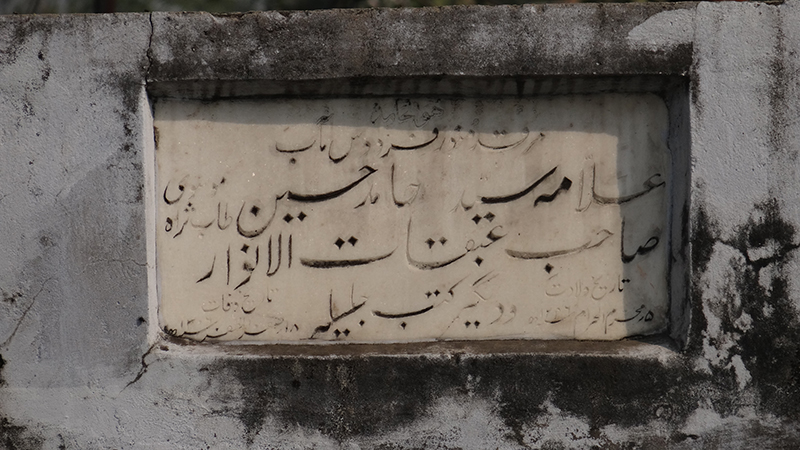 خوابگاه
مرقد منور فردوس مآب
علامہ سید حامد حسین موسوی طاب ثراہ
صاحب عبقات الانوار
ودیگر کتب جلیلہ
تاریخ ولادت
۵ محرم الحرام
تاریخ وفات
۱۸ صفر